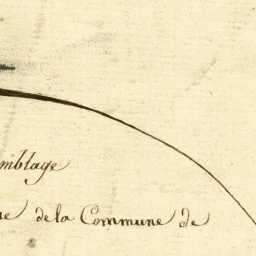 mblage
de la Commune de